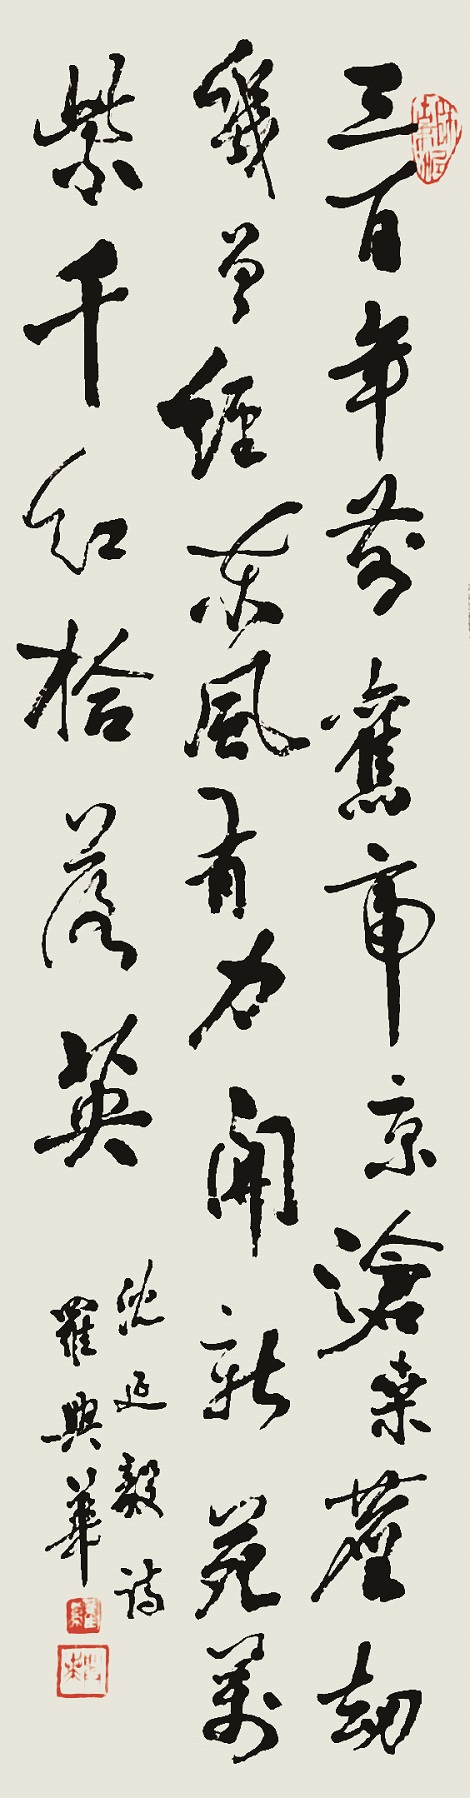 三百年前舊帝京滄桑塵劫
幾曾經東風有力開新苑萬
紫千紅拾落英
沈延毅詩
羅興華